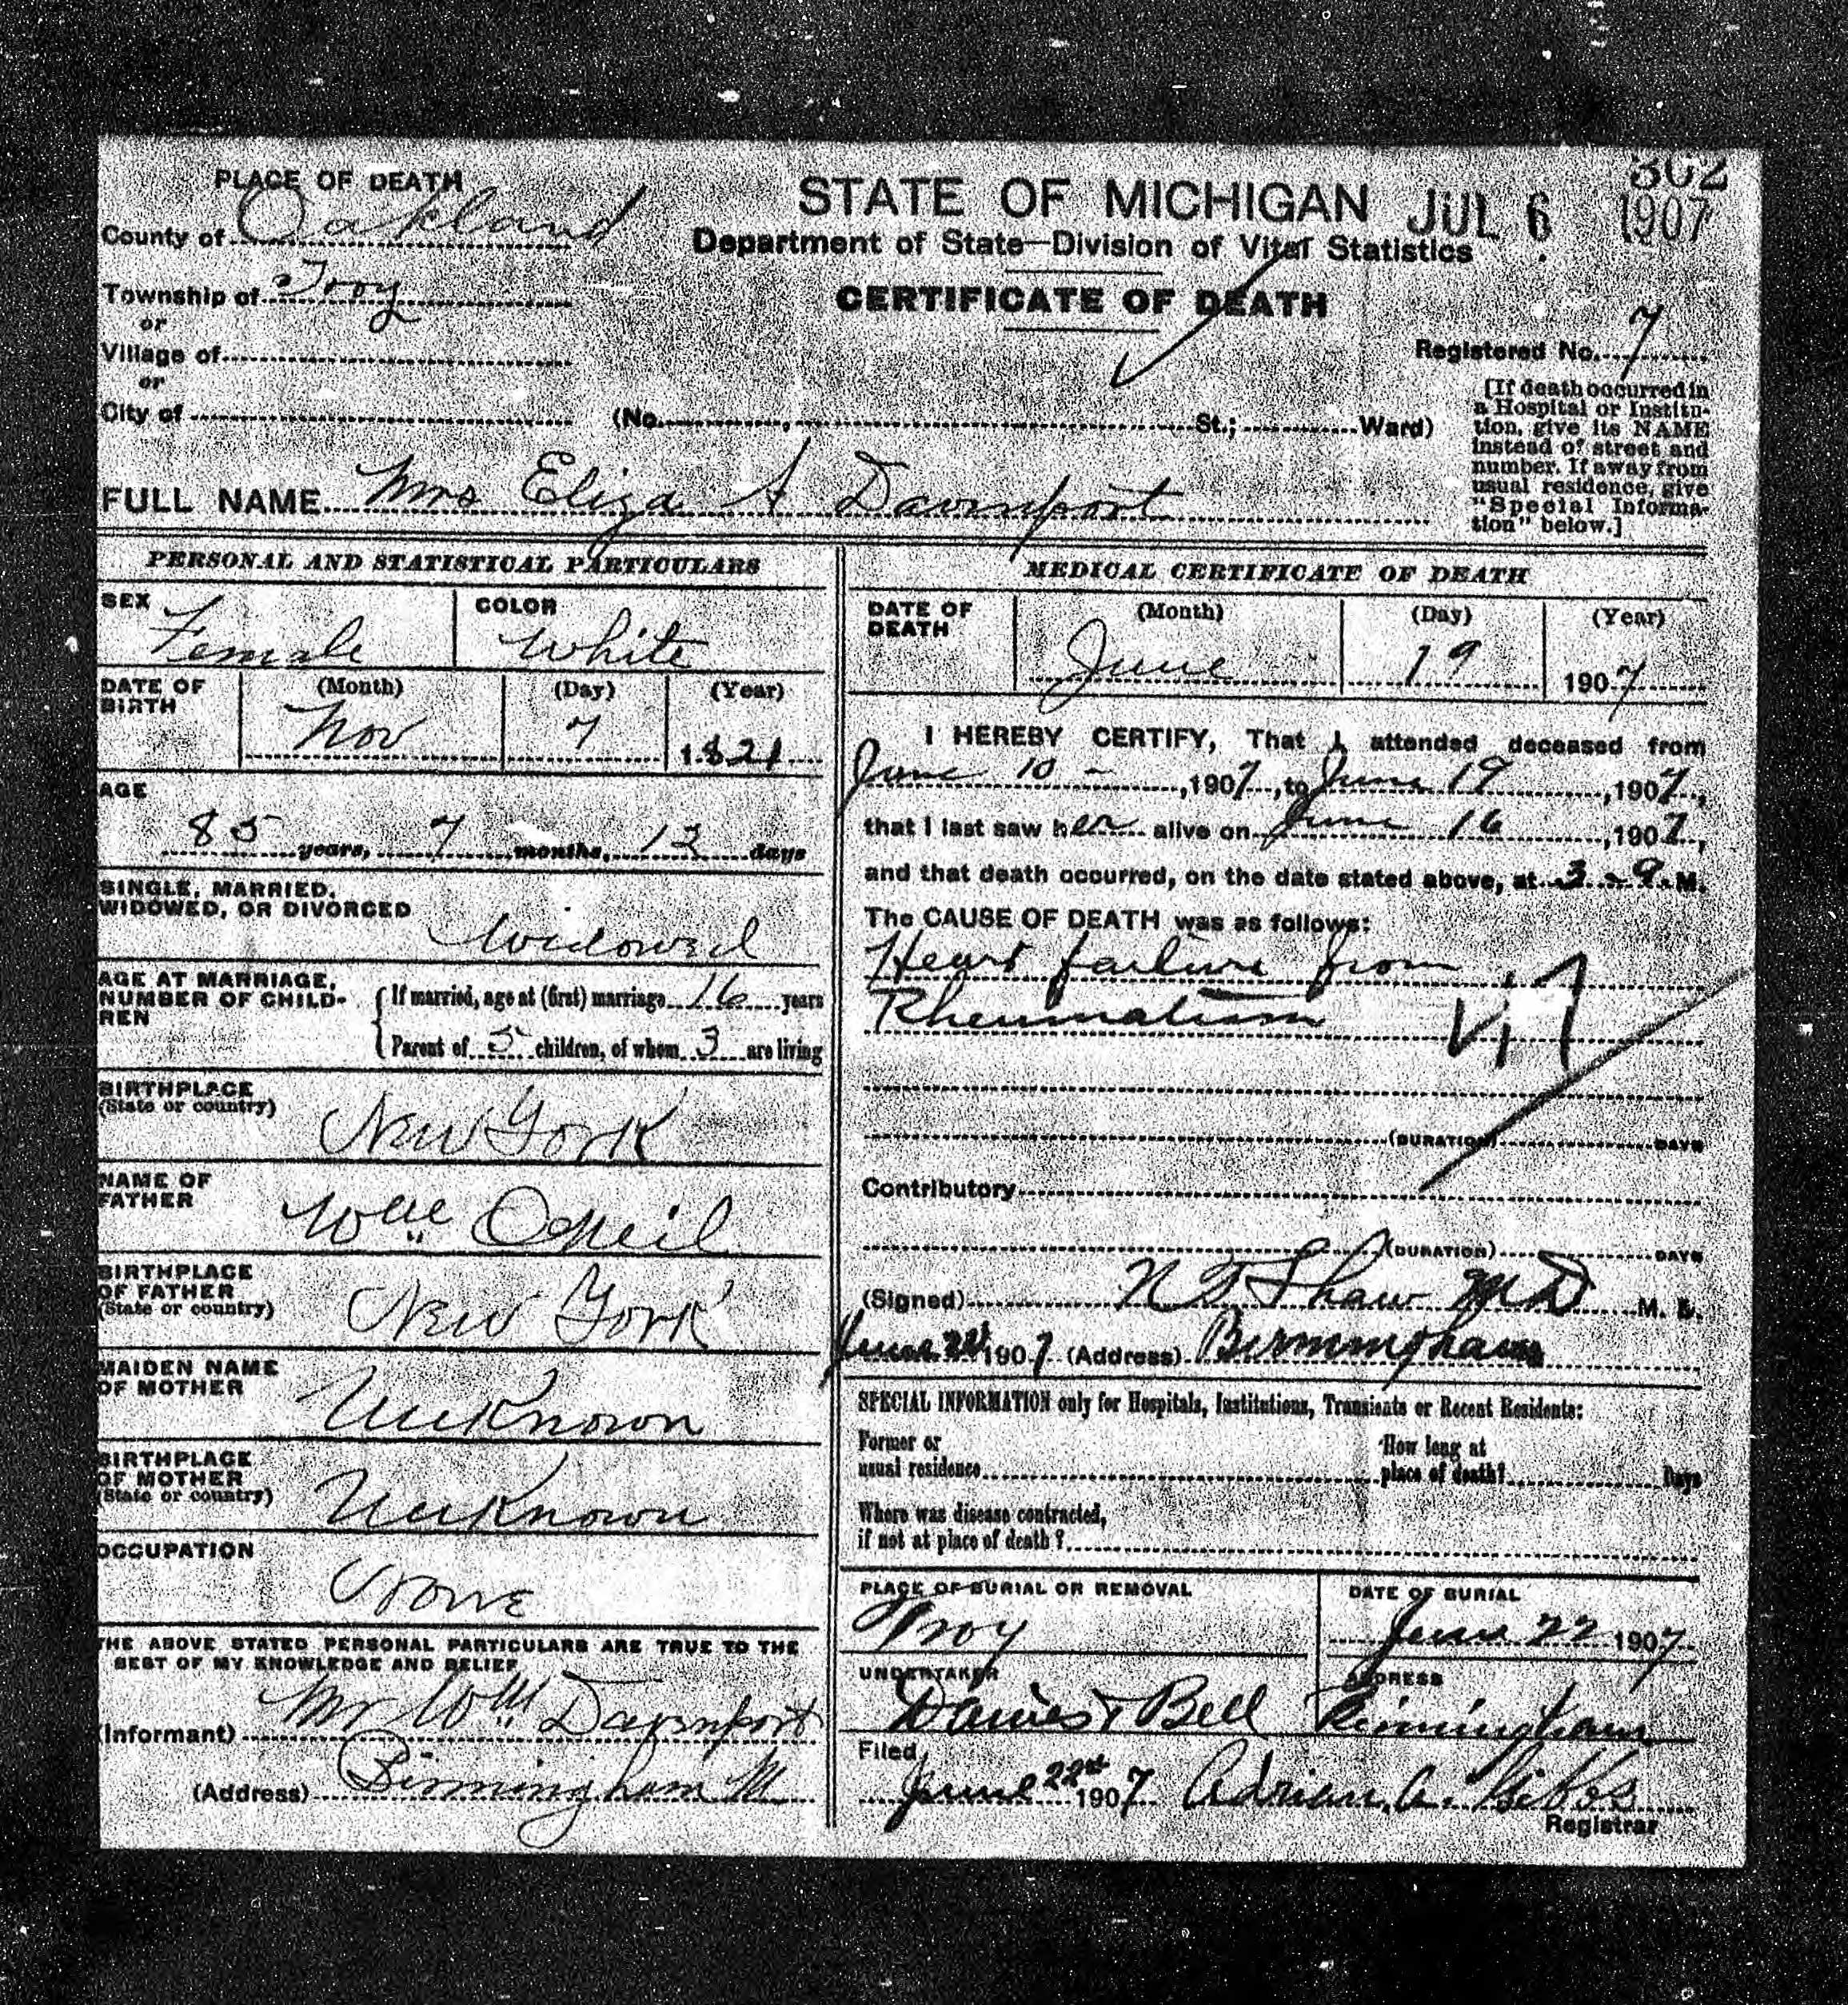 302
PLACE OF DEATH
STATE OF MICHIGAN JUL 6 1907
County of Oakland
Department of State—Division of Vital Statistics
Township of Troy
CERTIFICATE OF DEATH
or
Village of
Registered No. 7
or
City of (No. , St.; Ward)
[If death occurred in
a Hospital or Institu-
tion, give its NAME
instead of street and
number. If away from
usual residence, give
"Special Informa-
tion" below.]
FULL NAME Mrs Eliza A Davenport
PERSONAL AND STATISTICAL PARTICULARS
SEX COLOR
Female White
DATE OF BIRTH (Month) (Day) (Year)
Nov 7 1821
AGE
85 years, 7 months, 12 days
SINGLE, MARRIED,
WIDOWED, OR DIVORCED
Widowed
AGE AT MARRIAGE,
NUMBER OF CHILD-
REN
If married, age at (first) marriage 16 years
Parent of 5 children, of whom 3 are living
BIRTHPLACE
(State or country)
New York
NAME OF
FATHER
Wm ONeil
BIRTHPLACE
OF FATHER
(State or country)
New York
MAIDEN NAME
OF MOTHER
Unknown
BIRTHPLACE
OF MOTHER
(State or country)
Unknown
OCCUPATION
None
THE ABOVE STATED PERSONAL PARTICULARS ARE TRUE TO THE
BEST OF MY KNOWLEDGE AND BELIEF
(Informant) Mr Wm Davenport
(Address) Birmingham M
MEDICAL CERTIFICATE OF DEATH
DATE OF DEATH (Month) (Day) (Year)
June 19 1907
I HEREBY CERTIFY, That I attended deceased from
June 10 - , 1907, to June 19, 1907,
that I last saw her alive on June 16, 1907,
and that death occurred, on the date stated above, at 3 M.
The CAUSE OF DEATH was as follows:
Heart failure from
Rheumatism
(DURATION) DAYS
Contributory
(DURATION) DAYS
(Signed) N T Shaw MD M. D.
June 1907 (Address) Birmingham
SPECIAL INFORMATION only for Hospitals, Institutions, Transients or Recent Residents:
Former or
usual residence
How long at
place of death? Days
Where was disease contracted,
if not at place of death?
PLACE OF BURIAL OR REMOVAL
Troy
DATE OF BURIAL
June 22 1907
UNDERTAKER
Daines & Bell
ADDRESS
Birmingham
Filed
June 22nd 1907 Adrian A. Gibbs
Registrar